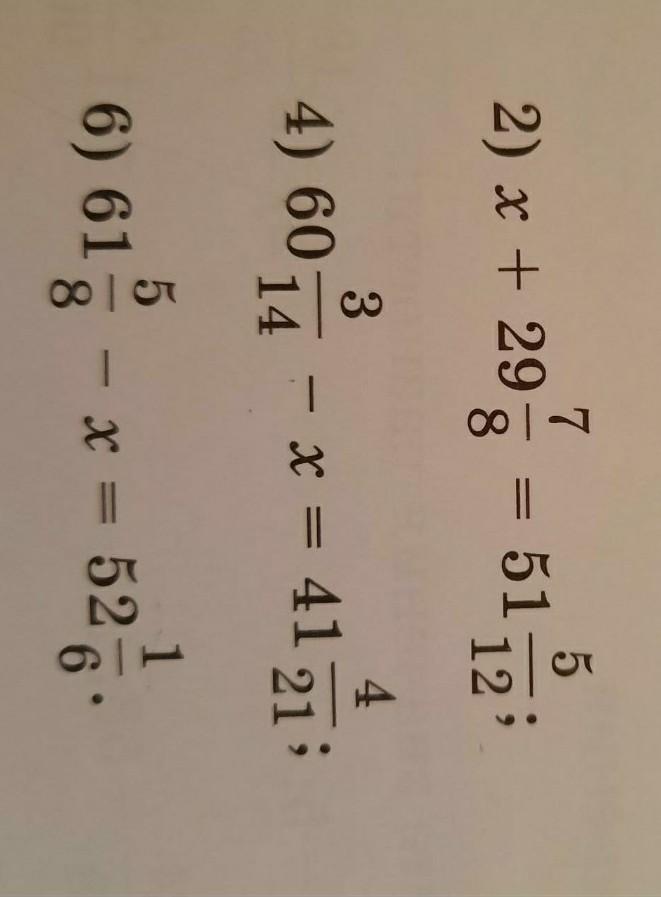 2) x + 29 7/8 = 51 5/12;
4) 60 3/14 − x = 41 4/21;
6) 61 5/8 − x = 52 1/6.